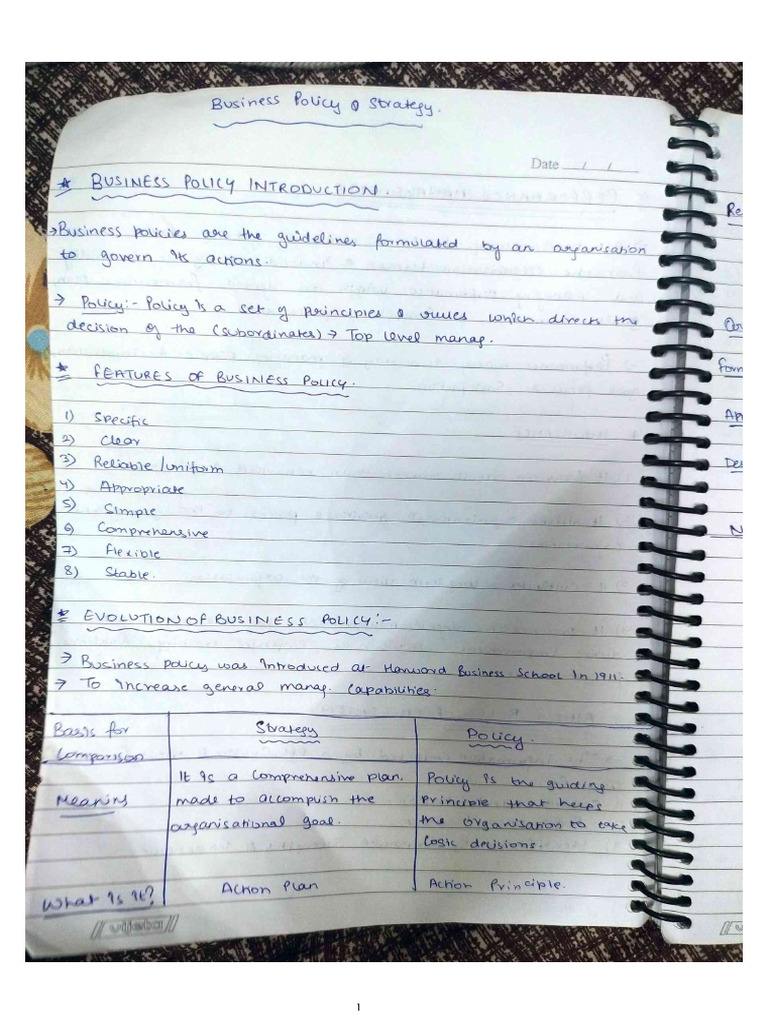 Business Policy & Strategy.
Date __/__/__
* BUSINESS POLICY INTRODUCTION.
→ Business policies are the guidelines formulated by an organisation
to govern its actions.
→ Policy:- Policy is a set of principles & rules which directs the
decision of the (subordinates) → Top level manag.
* FEATURES OF BUSINESS POLICY.
1) Specific
2) Clear
3) Reliable/uniform
4) Appropriate
5) Simple
6) Comprehensive
7) flexible
8) Stable.
* EVOLUTION OF BUSINESS POLICY:-
→ Business policy was introduced at Harward Business School in 1911.
→ To increase general manag. capabilities.
Basis for Comparison
Strategy
Policy.
Meaning
It is a comprehensive plan.
made to accomplish the
organisational goal.
Policy is the guiding
principle that helps
the organisation to take
logic decisions.
What is it?
Action Plan
Action Principle.
vijeta
Re
form
Ap
De
N
1